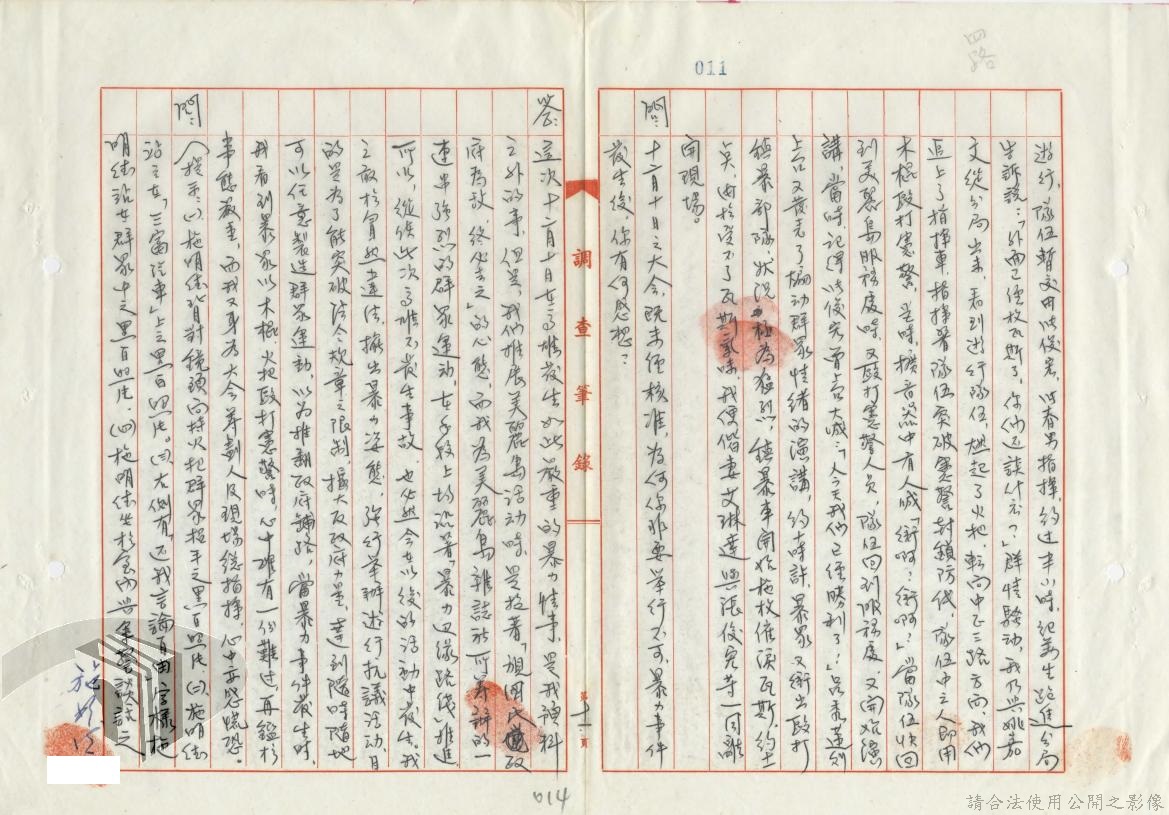 四路
011
遊行，隊伍暫交由以俊宏、以春男指揮，約過半小時，紀萬生跑進分局
告訴說：「外面已經放瓦斯了，你們还談什么？」群情騷動，我乃與姚嘉
文從分局出來，看到遊行隊伍燃起了火把，轉向中正三路方面，我們
追上了指揮車，指揮著隊伍突破憲警封鎖防線，隊伍中之人即用
木棍毆打憲警，是時，擴音器中有人喊「衝啊！衝啊！」當隊伍快回
到美麗島服務處時，又毆打憲警人員，隊伍回到服務處，又開始演
講，當時，記得以俊宏曾高大喊：「今天我們已經勝利了！」呂秀蓮則
上台又發表了煽動群眾情緒的演講，約時許，暴眾又衝出毆打
鎮暴部隊，狀況極為猛烈，鎮暴車開始施放催淚瓦斯，約十
點，由於受不了瓦斯氣味，我便偕妻艾琳達與張俊宏等一同離
開現場。
問：十二月十日之大會，既未經核准，為何你非要舉行不可，暴力事件
發生後，你有何感想？
調查筆錄
第十一頁
答：這次十二月十日在高雄發生如此嚴重的暴力情事，是我預料
之外的事，但是，我們推展美麗島活動時，是技著「視國民黨政
府為敵，終必去之」的心態，而我為美麗島雜誌社所籌辦的一
連串強烈的群眾運動，在手段上均沿著「暴力边緣路线」推進
所以，縱使此次高雄不發生事故，也必然會在以後的活動中發生。我
之敢於冒然違法，擺出暴力姿態，強行舉辦遊行抗議活動，目
的是為了能突破法令規章之限制，擴大反政府力量，達到隨時隨地
可以任意製造群眾運動，以為推翻政府鋪路，當暴力事件發生時，
我看到暴眾以木棍、火把毆打憲警時，心中雖有一份難过，再鑑於
事態嚴重，而我又身為大会籌劃人及現場總指揮，心中亦感惶恐。
問：（提示：㈠施明德背對鏡頭向持火把群眾招手之黑白照片㈡施明德
站立在「三富汽車」上之黑白照片。㈢左側有「还我言論自由」字樣，施
明德站在群眾中之黑白照片。㈣施明德坐於室內與軍警談話之
施明德
014
請合法使用公開之影像